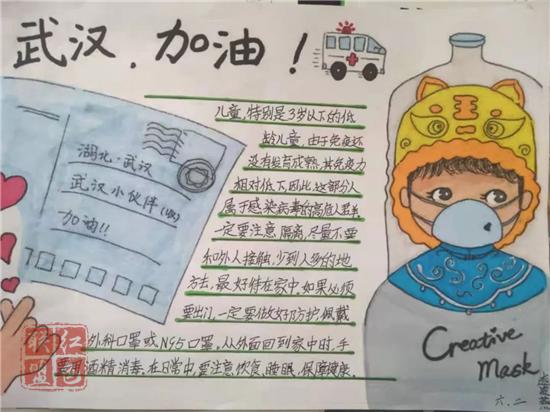 武汉，加油！
湖北·武汉
武汉小伙伴(收)
加油!!
儿童，特别是3岁以下的低
龄儿童，由于免疫还
没有发育成熟，其免疫力
相对低下，因此这部分人
属于感染病毒的高危人群
一定要注意隔离，尽量不要
和外人接触，少到人多的地
方去，最好待在家中，如果必须
要出门，一定要做好防护，佩戴
外科口罩或N95口罩，从外面回到家中时，手
要用酒精消毒，在日常中要注意饮食，睡眠，保障健康。
Creative
Mask
六、二